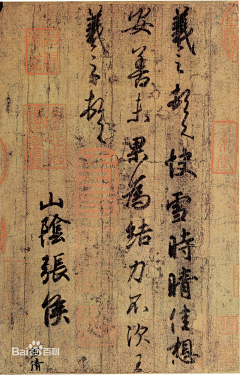 羲之頓首快雪時晴佳想
安善未果為結力不次王
羲之頓首
山陰張侯
Bai百科